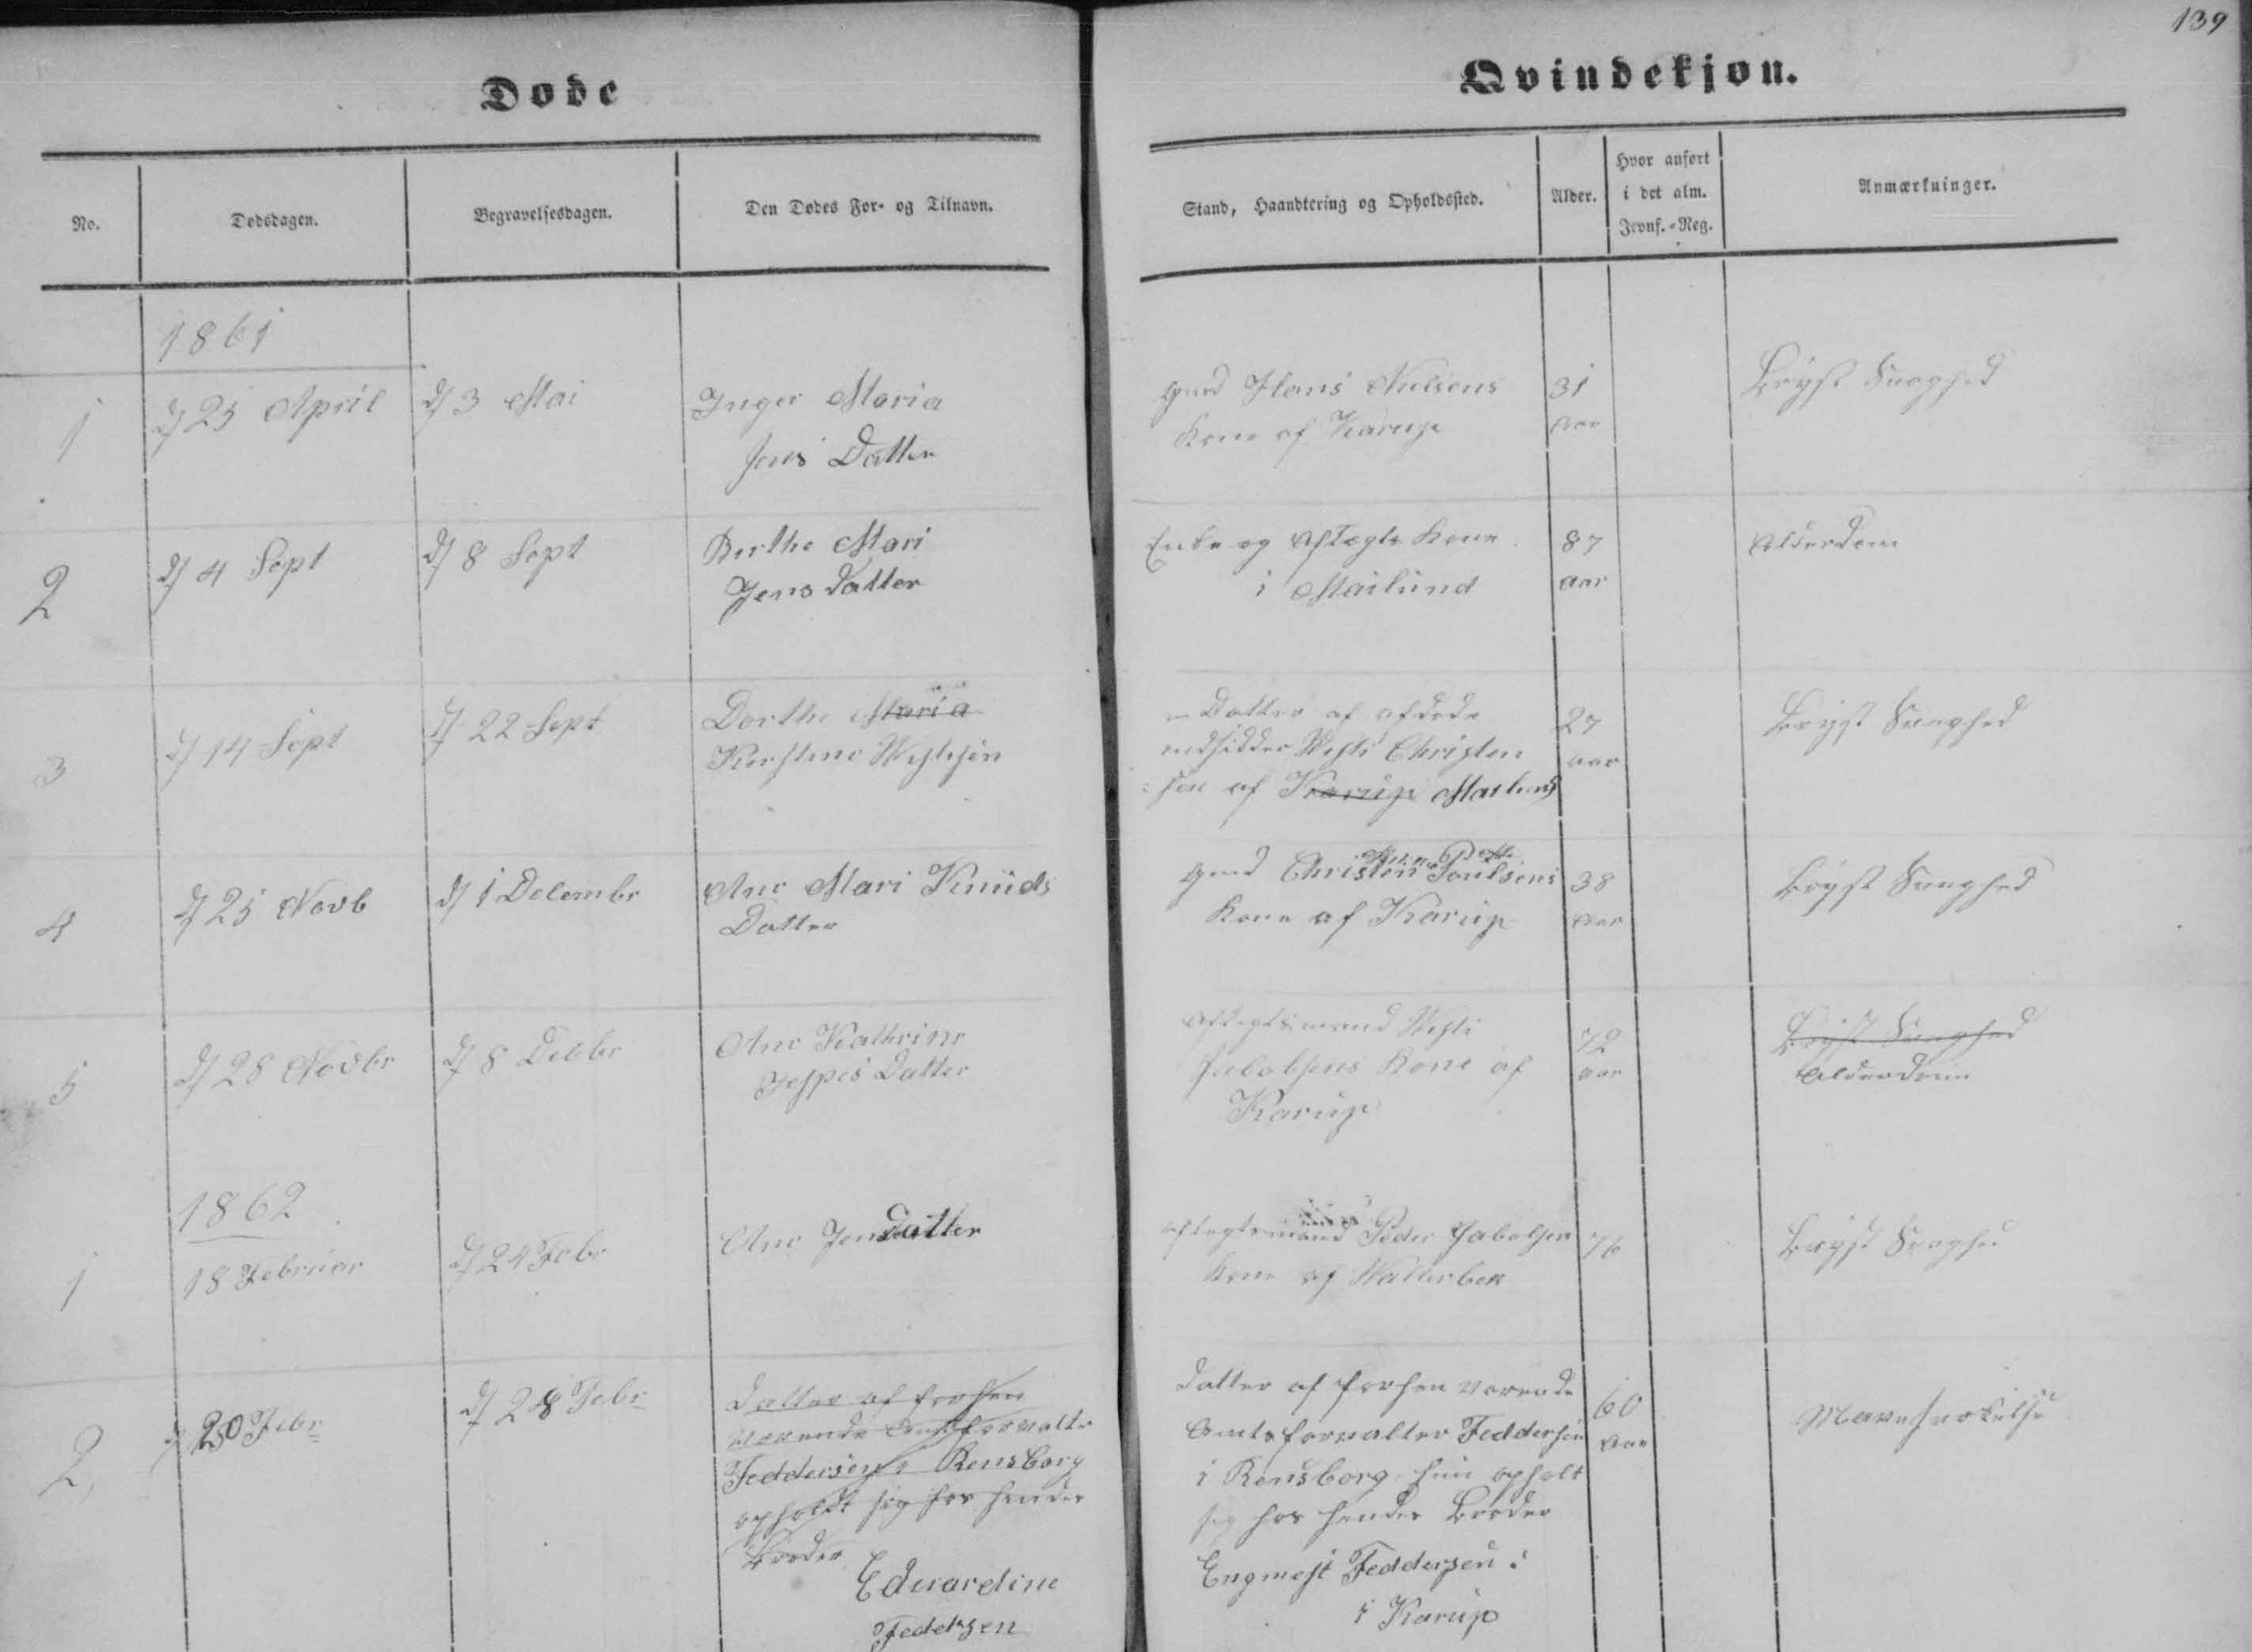 139
Døde
Qvindekjøn.
No.
Dødsdagen.
Begravelsesdagen.
Den Dødes For- og Tilnavn.
Stand, Haandtering og Opholdssted.
Alder.
Hvor anført
i det alm.
Jevnf.-Reg.
Anmærkninger.
1861
1
d 25 April
d 3 Mai
Inger Maria
Jens Datter
Gmd Hans Nielsens
Kone af Karup
31
Aar
Bryst Svaghed
2
d 4 Sept
d 8 Sept
Birthe Mari
Jens Datter
Enke og Aftægts Kone
i Mailund
87
aar
Alderdom
3
d 14 Sept
d 22 Sept
Dorthe Maria
Kirstine
Datter af afdøde
indsidder Christen
sen af Karup Mailund
27
aar
Bryst Svaghed
4
d 25 Novb
d 1 Decembr
Ane Mari Knuds
Datter
Gmd Christen Poulsens
Kone af Karup
38
Aar
Bryst Svaghed
5
d 28 Novbr
d 8 Decbr
Ane Kathrine
Jeppes Datter
Aftægtsmand
Jacobsens Kone af
Karup
72
aar
Bryst Svaghed
Alderdom
1862
1
18 Februar
d 24 Febr
Ane Jensdatter
Aftægtsmand Peder Jakobsen
Kone af
76
Bryst Svaghed
2
20 Febr
d 28 Febr
Datter af forhen
værende Amtsforvalter
Feddersen i Rensborg
opholdt sig hos hendes
Broder
Edvardine
Feddersen
Datter af forhen værende
Amtsforvalter Feddersen
i Rensborg hun opholt
sig hos hendes Broder
Engmest Feddersen i
i Karup
60
Aar